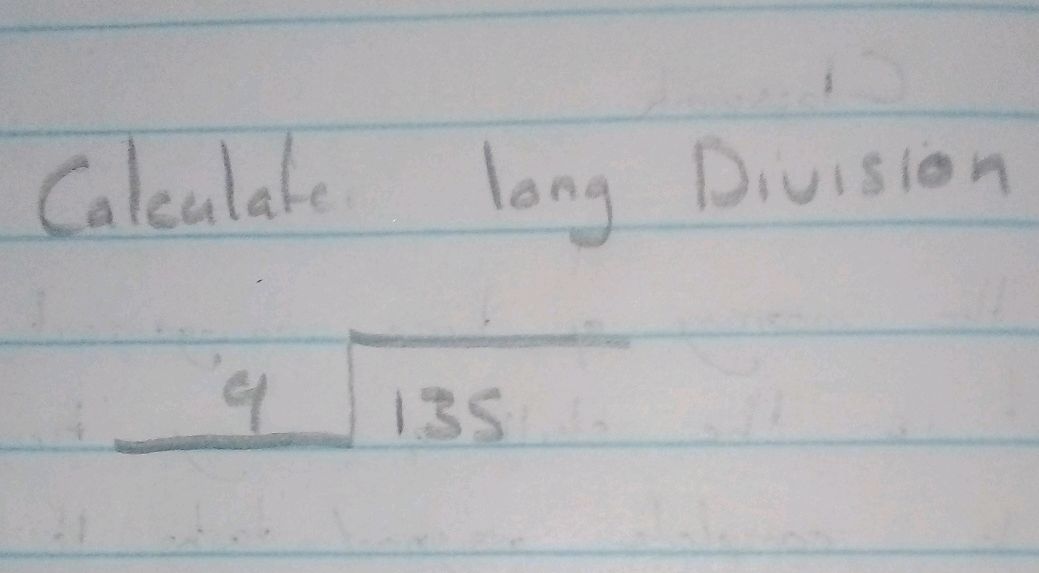 Calculate long Division
9 135